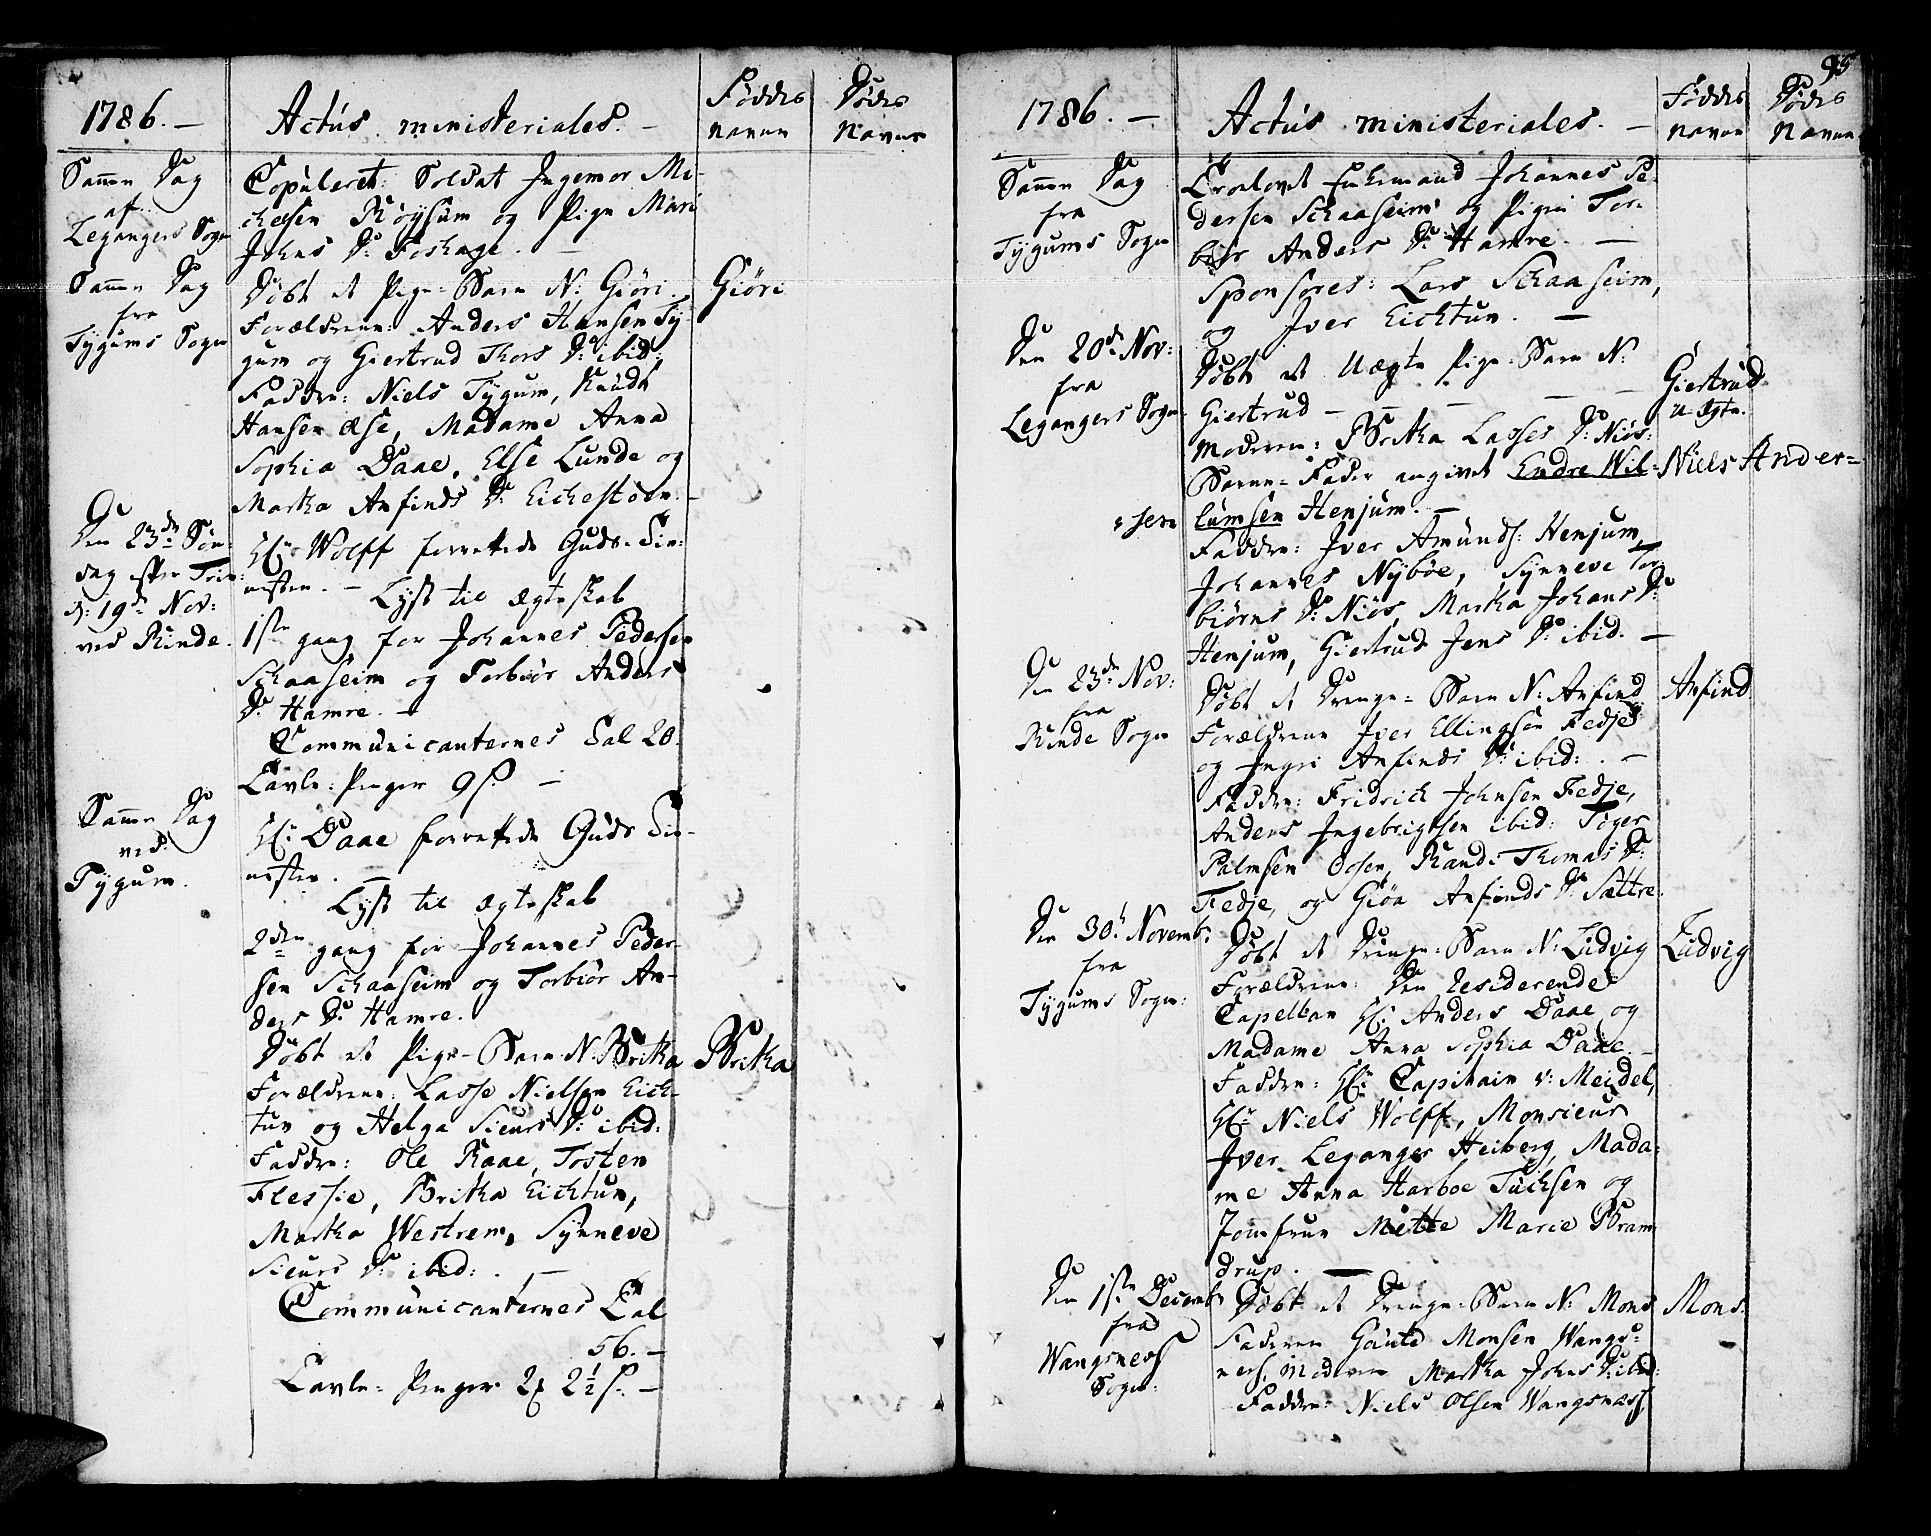 1786. —
Actus ministeriales. —
Føddes
Navne
Dødes
Navne
Samme Dag
af
Legangers Sogn
Copuleret: Soldat Ingemor Mi-
chelsen Røysum og Pige Mari
Johns D: Foshage. —
Samme Dag
fra
Tygums Sogn
Døbt et Pige-Barn N: Giøri
Giøri
Forældrene: Anders Hansen Ty-
gum og Giertrud Thors D: ibid:
Faddre: Niels Tygum, Knud
Hansen Ese, Madame Anna
Sophia Daae, Else Lunde og
Martha Anfinds D: Eichestøen. —
Den 23de Søn-
dag efter Trin:
d: 19de Nov:
ved Rinde.
Hr: Wolff forrettede Guds-Tie-
nesten. — Lyst til Ægteskab
1ste gang for Johannes Pedersen
Schaaseim og Torbiør Anders
D: Hamre. —
Communicanternes Tal 20.
Tavle-Penger 9 s. —
Samme Dag
ved
Tygum.
Hr: Daae forrettede Guds Tie-
nesten. —
Lyst til Ægteskab
2den gang for Johannes Peder-
sen Schaaseim og Torbiør An-
ders D: Hamre.
Døbt et Pige-Barn N: Britha
Britha
Forældrene: Lasse Nielsen Eich-
tun og Helga Sieurs D: ibid:
Faddre: Ole Raae, Tosten
Flessie, Britha Eichtun,
Martha Westrem, Synneve
Sieurs D: ibid: . —
Communicanternes Tal
56. —
Tavle-Penger 2 2½ s. —
95
1786. —
Actus ministeriales. —
Føddes
Navne
Dødes
Navne
Samme Dag
fra
Tygums Sogn
Trolovet Enkemand Johannes Pe-
dersen Schaaseim og Pigen Tor-
biør Anders D: Hamre. —
Sponsores: Lars Schaaseim,
og Iver Eichtun. —
Den 20de Nov:
fra
Legangers Sogn
Døbt et Uægte Pige-Barn N:
Giertrud — — — — —
Giertrud
u-ægte.
Moderen: Britha Lasses D: Niøs:
Barne-Fader angivet Endre Wil-
Niels Ander-
sen
lumsen Henjum. —
Faddre: Iver Amunds: Henjum,
Johannes Nybøe, Synneve Tor-
biørns D: Niøs, Martha Johans D:
Henjum, Giertrud Jens D: ibid. —
Den 23de Nov:
fra
Rinde Sogn
Døbt et Drenge-Barn N: Anfind
Anfind
Forældrene Iver Ellingsen Fedje
og Ingri Anfinds D: ibid: . —
Faddre: Fridrich Johnsen Fedje,
Anders Ingebrigtsen ibid: Tøger
Palmsen Ossen, Randi Thomas D:
Fedje, og Giøa Anfinds D: Sættre.
Den 30te Novemb:
fra
Tygums Sogn:
Døbt et Drenge-Barn N: Ludvig
Ludvig
Forældrene: Den Residerende
Capellan Hr: Anders Daae og
Madame Anna Sophia Daae. —
Faddre: Hr: Capitain v: Meidel,
Hr: Niels Wolff, Monsieur
Iver Leganger Heiberg, Mada-
me Anna Harboe Tuchsen og
Jomfrue Mette Marie Bram
drup. —
Den 1ste Decemb:
fra
Wangsness
Sogn:
Døbt et Drenge-Barn N: Mons
Mons.
Faderen Gaute Monsen Wangs-
ness, Moderen Martha Johns D: ibid:
Faddre: Niels Olsen Wangsnæss